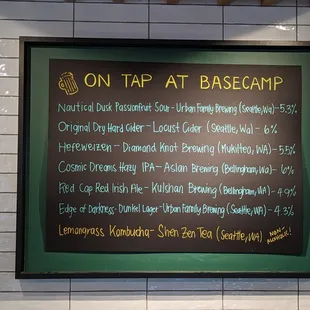 ON TAP AT BASECAMP
Nautical Dusk Passionfruit Sour - Urban Family Brewing (Seattle, Wa) - 5.3%
Original Dry Hard Cider - Locust Cider (Seattle, Wa) - 6%
Hefeweizen - Diamond Knot Brewing (Mukilteo, WA) - 5.5%
Cosmic Dreams Hazy IPA - Aslan Brewing (Bellingham, Wa) - 6%
Red Cap Red Irish Ale - Kulshan Brewing (Bellingham, WA) - 4.9%
Edge of Darkness - Dunkel Lager - Urban Family Brewing (Seattle, WA) - 4.3%
Lemongrass Kombucha - Shen Zen Tea (Seattle, WA) NON-ALCOHOLIC!